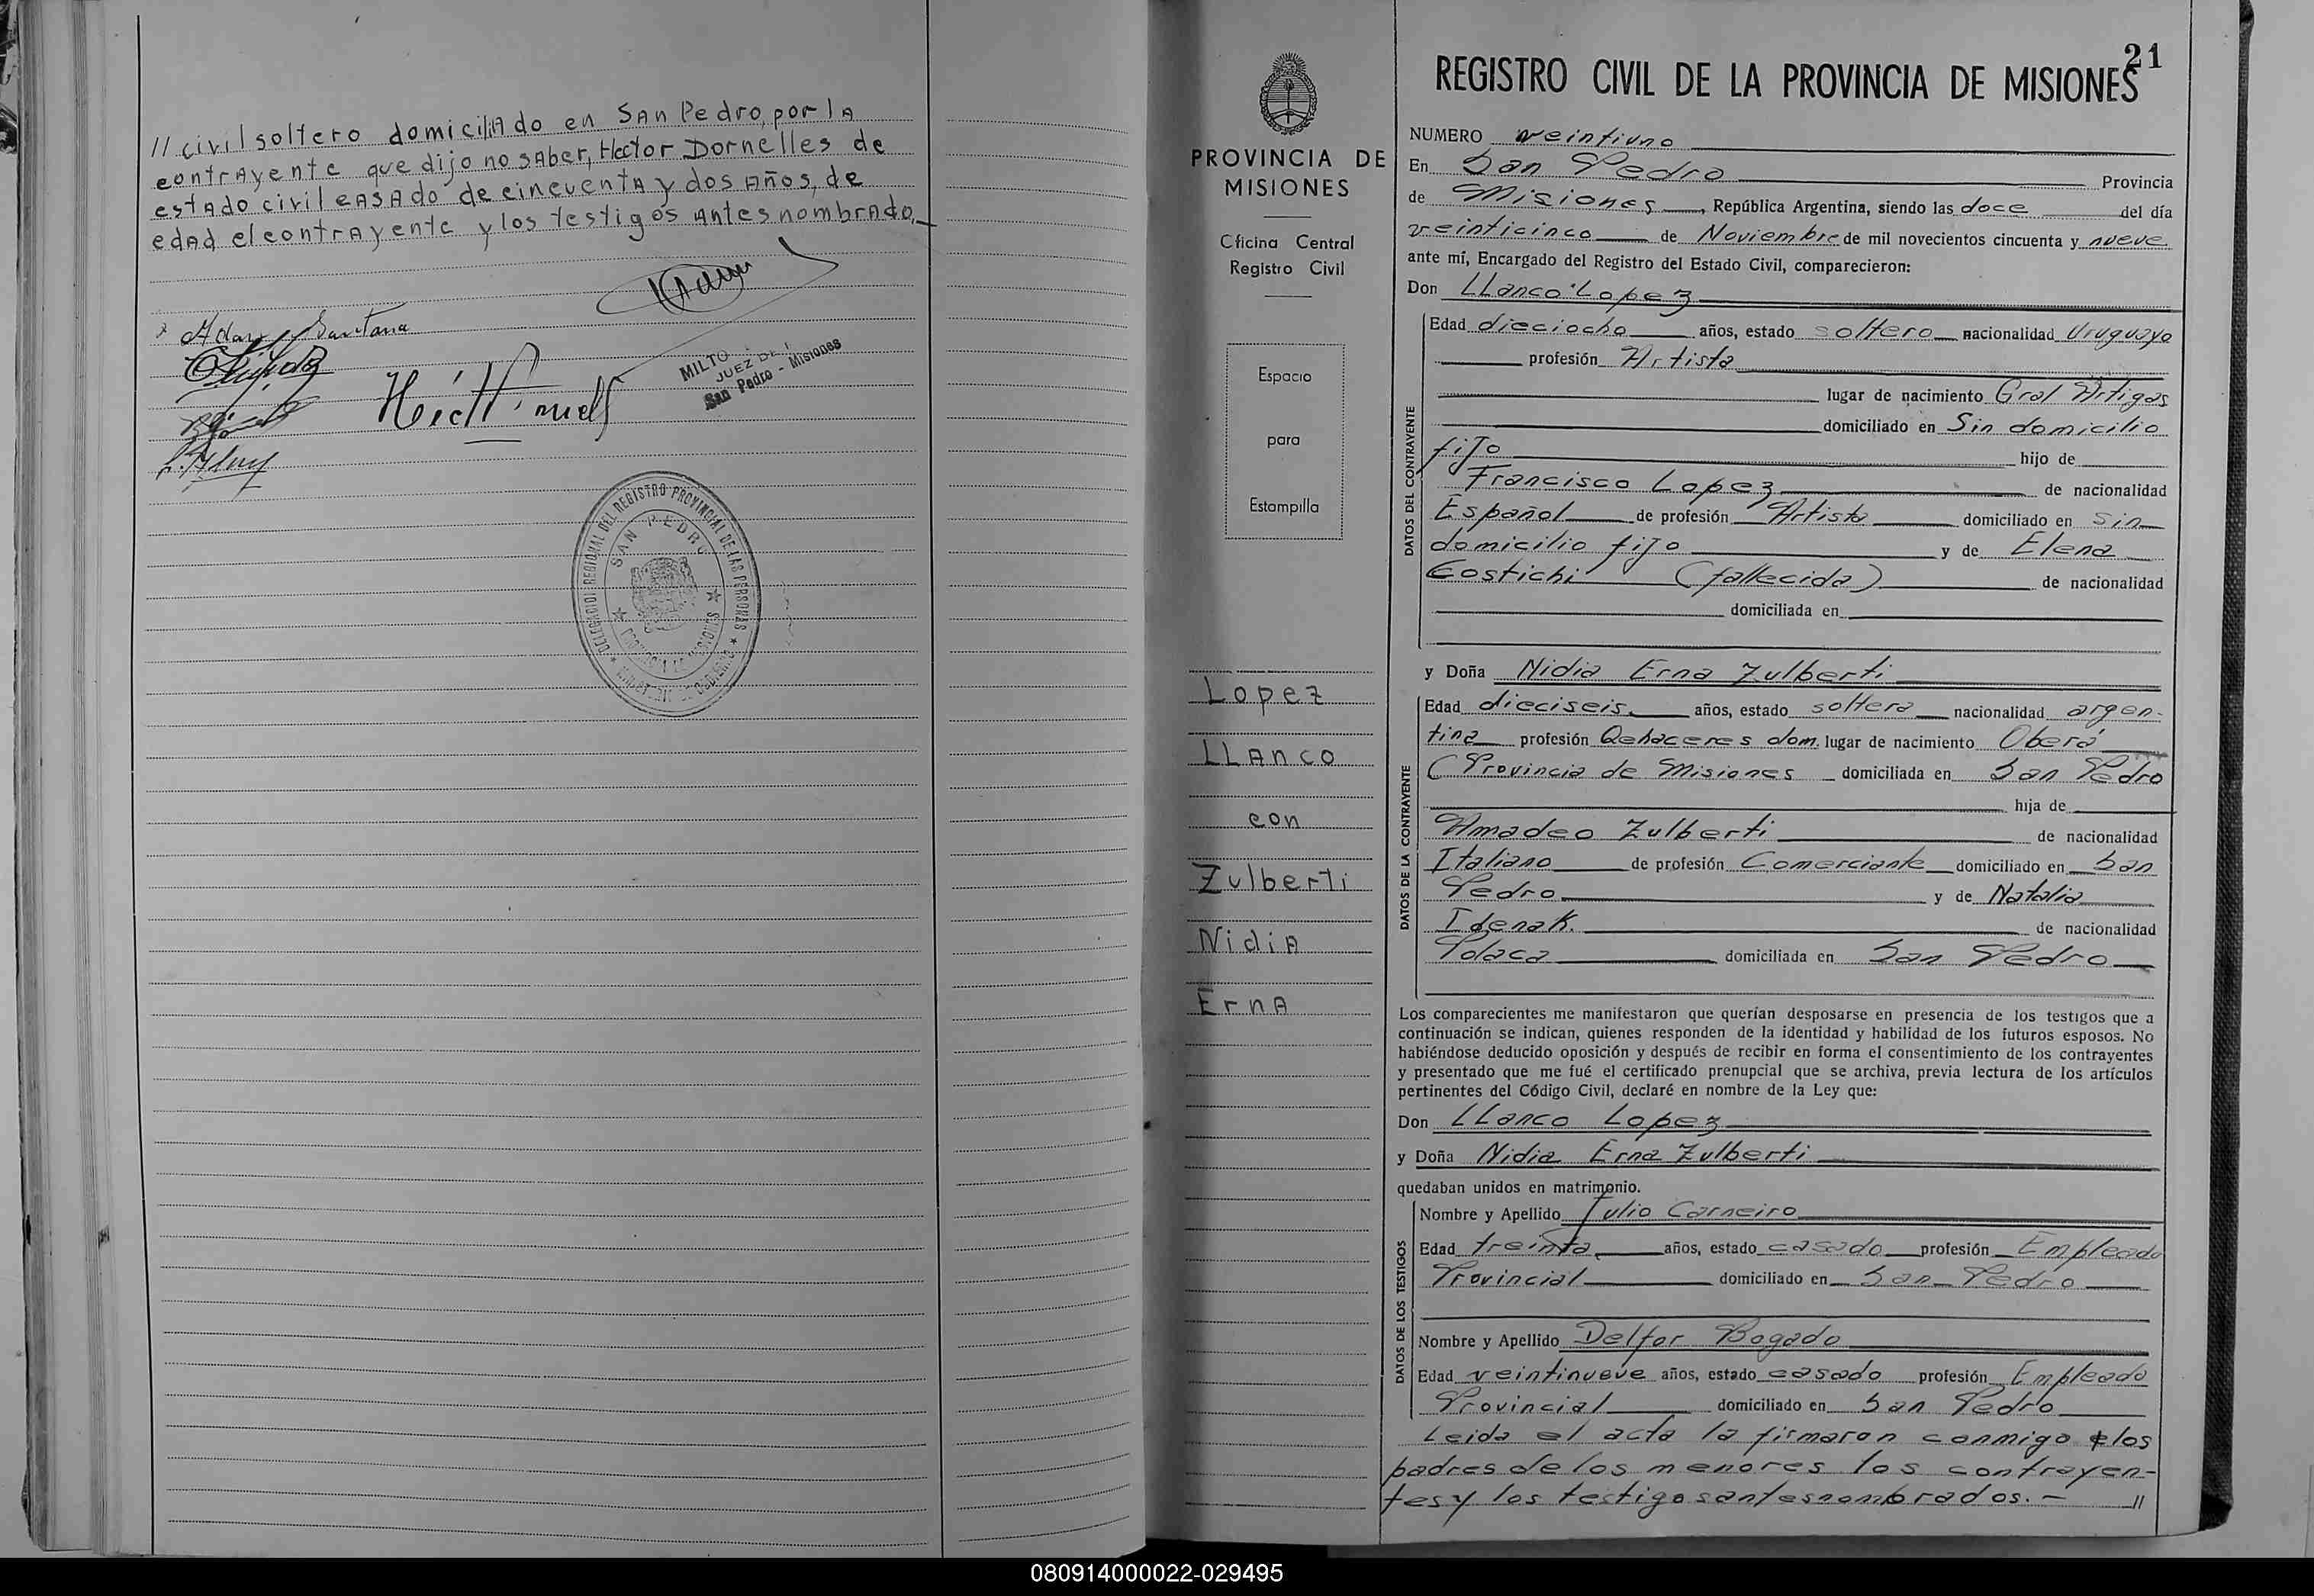 // civil soltero domiciliado en San Pedro, por la
contrayente que dijo no saber, Hector Dornelles de
estado civil casado de cincuenta y dos años, de
edad el contrayente y los testigos antes nombrado.
Santana
MILTO
JUEZ DE
San Pedro - Misiones
DELEGACION REGIONAL DEL REGISTRO PROVINCIAL DE LAS PERSONAS
SAN PEDRO
PROVINCIA DE MISIONES
PROVINCIA DE
MISIONES
Oficina Central
Registro Civil
Espacio
para
Estampilla
Lopez
LLanco
con
Zulberti
Nidia
Erna
21
REGISTRO CIVIL DE LA PROVINCIA DE MISIONES
NUMERO veintiuno
En San Pedro Provincia
de Misiones, República Argentina, siendo las doce del día
veinticinco de Noviembre de mil novecientos cincuenta y nueve
ante mí, Encargado del Registro del Estado Civil, comparecieron:
Don LLanco Lopez
DATOS DEL CONTRAYENTE
Edad dieciocho años, estado soltero nacionalidad Uruguaya
profesión Artista
lugar de nacimiento Gral Artigas
domiciliado en Sin domicilio
fijo hijo de
Francisco Lopez de nacionalidad
Español de profesión Artista domiciliado en Sin
domicilio fijo y de Elena
Costichi (fallecida) de nacionalidad
domiciliada en
y Doña Nidia Erna Zulberti
DATOS DE LA CONTRAYENTE
Edad dieciseis años, estado soltera nacionalidad argen-
tina profesión Qehaceres dom. lugar de nacimiento Oberá
(Provincia de Misiones domiciliada en San Pedro
hija de
Amadeo Zulberti de nacionalidad
Italiano de profesión Comerciante domiciliado en San
Pedro y de Natalia
de nacionalidad
Polaca domiciliada en San Pedro
Los comparecientes me manifestaron que querían desposarse en presencia de los testigos que a
continuación se indican, quienes responden de la identidad y habilidad de los futuros esposos. No
habiéndose deducido oposición y después de recibir en forma el consentimiento de los contrayentes
y presentado que me fué el certificado prenupcial que se archiva, previa lectura de los artículos
pertinentes del Código Civil, declaré en nombre de la Ley que:
Don LLanco Lopez
y Doña Nidia Erna Zulberti
quedaban unidos en matrimonio.
DATOS DE LOS TESTIGOS
Nombre y Apellido Julio Carneiro
Edad treinta años, estado casado profesión Empleado
Provincial domiciliado en San Pedro
Nombre y Apellido Delfor Bogado
Edad veintinueve años, estado casado profesión Empleado
Provincial domiciliado en San Pedro
Leida el acta la firmaron conmigo los
padres de los menores los contrayen-
tes y los testigos antes nombrados. — //
080914000022-029495